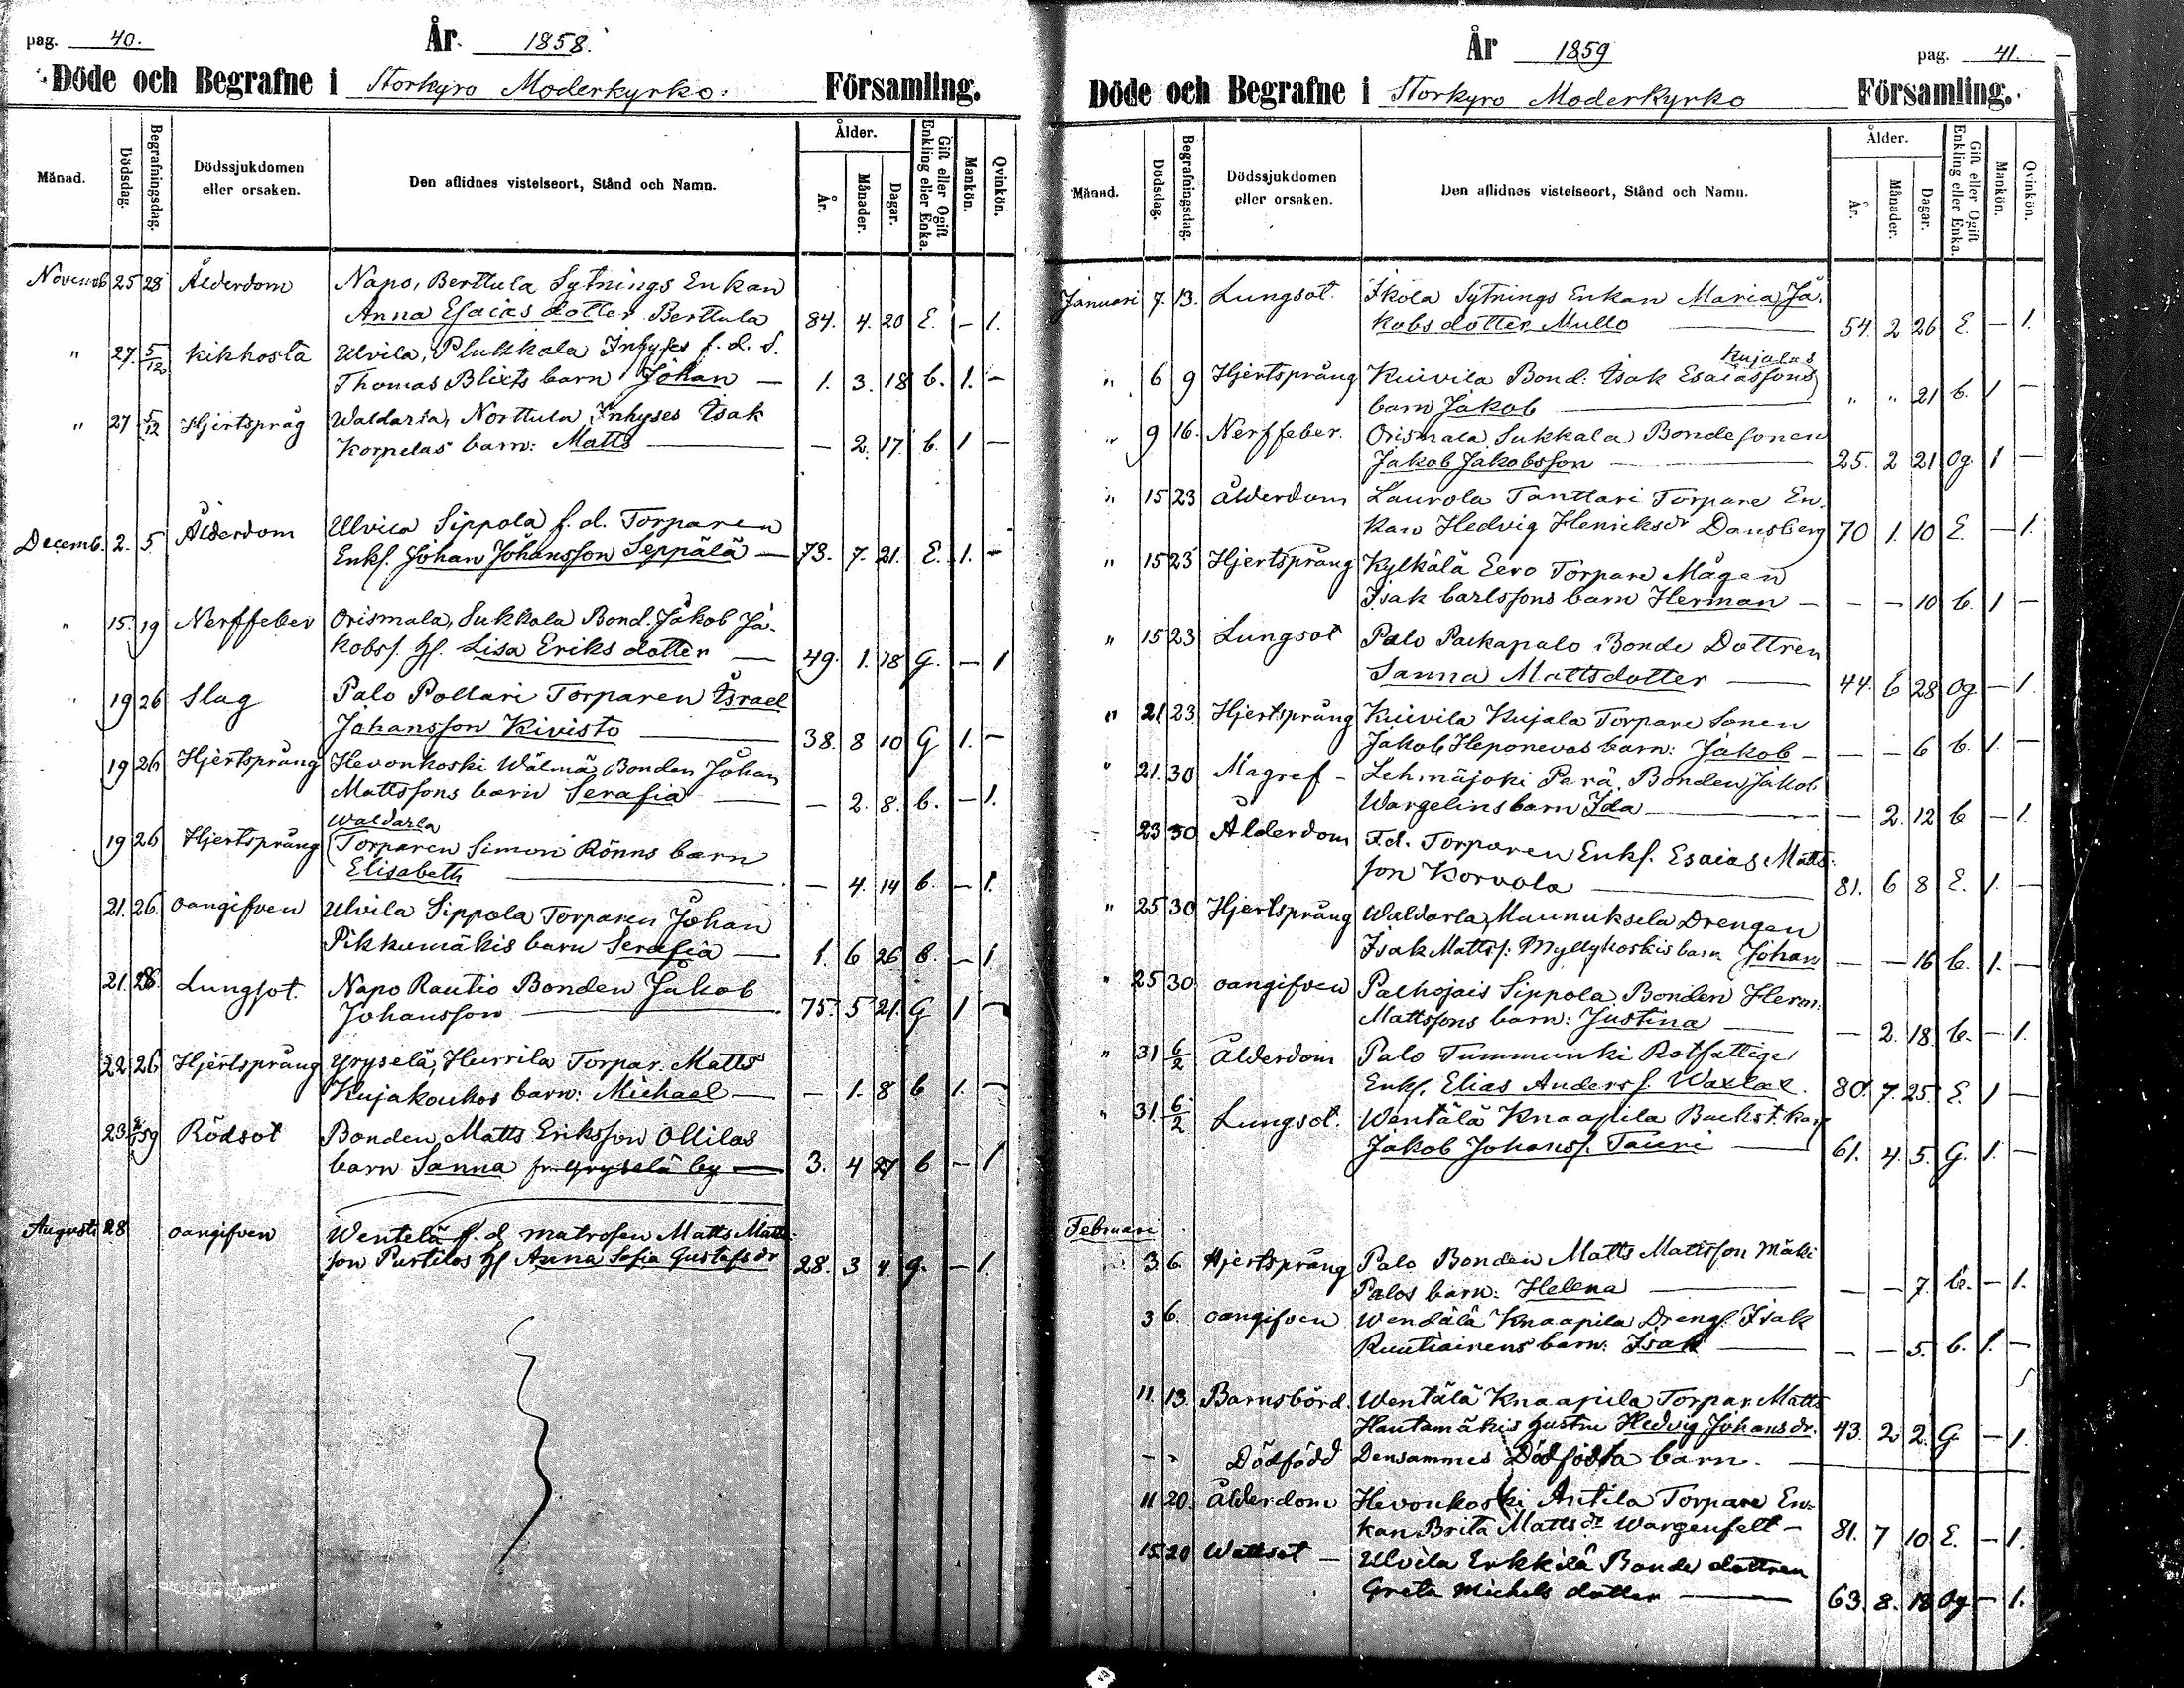 pag. 40. År. 1858.
Döde och Begrafne i Storkyro Moderkyrko: Församling.
Månad. Dödsdag. Begrafningsdag. Dödssjukdomen eller orsaken. Den aflidnes vistelseort, Stånd och Namn. Ålder. År. Månader. Dagar. Gift eller Ogift Enkling eller Enka. Mankön. Qvinkön.
Novemb 25 28 Ålderdom Napo, Berttula Sytnings Enkan
Anna Esaias dotter Berttula 84. 4. 20 E. — 1.
" 27. 5/12 Kikhosta Ulvila, Plukkala Inhyses f.d.s.
Thomas Blixts barn Johan — 1. 3. 18 b. 1. —
" 27 5/12 Hjertspråg Waldarla, Norttula, Inhyses Isak
Korpelas barn: Matts — 2. 17. b. 1 —
Decemb. 2. 5. Ålderdom Ulvila Sippola f.d. Torparen
Enkl. Johan Johansson Seppälä — 73. 7. 21. E. 1. —
" 15. 19 Nerffeber Orismala, Sukkala Bond. Jakob Ja-
kobss. H. Lisa Eriks dotter — 49. 1. 18 G. — 1
19 26 Slag Palo Pollari Torparen Israel
Johansson Kivisto 38. 8 10 G 1. —
19 26 Hjertsprång Hevonkoski Wälmä Bonden Johan
Mattssons barn Serafia — 2. 8. b. — 1.
Waldarla
19 26 Hjertsprång Torparen Simon Rönns barn
Elisabeth — 4. 14 b. — 1.
21. 26. oangifven Ulvila Sippola Torparen Johan
Pikkumäkis barn Serafia — 1. 6 26 b. — 1
21. 26. Lungsot. Napo Rautio Bonden Jakob
Johansson 75. 5 21. G 1 —
22 26 Hjertsprång Yryselä, Hurrila Torpar. Matts
Kujakoukos barn: Michael — — 1. 8 b 1. —
23. 59 Rödsot Bonden Matts Eriksson Ollilas
barn Sanna fr. Yryselä by — 3. 4 27 b — 1
Augusti 28 oangifven Wentelä f.d matrosen Matts Matts-
son Purtilos H Anna Sofia Gustafs dr 28. 3 4. g. — 1.
År 1859 pag. 41.
Döde och Begrafne i Storkyro Moderkyrko Församling.
Månad. Dödsdag. Begrafningsdag. Dödssjukdomen eller orsaken. Den aflidnes vistelseort, Stånd och Namn. Ålder. År. Månader. Dagar. Gift eller Ogift Enkling eller Enka. Mankön. Qvinkön.
Januari 7. 13. Lungsot. Ikola Sytnings Enkan Maria Ja-
kobs dotter Mullo 54. 2 26 E. — 1.
Kujalas
" 6 9 Hjertsprång Kuivila Bond: Isak Esaiassons
barn Jakob " " 21 b. 1 —
" 9 16. Nerffeber. Orismala Sukkala Bondesonen
Jakob Jakobsson 25. 2 21 Og 1 —
" 15 23 ålderdom Laurola Tanttari Torpare En-
kan Hedvig Henriksdr Dansberg 70 1. 10 E. — 1.
" 15 23 Hjertsprång Kylkälä Eero Torpare Mågen
Isak Carlssons barn Herman — — — 10 b. 1 —
" 15 23 Lungsot Palo Packapalo Bonde Dottren
Sanna Mattsdotter 44. 6 28 Og — 1.
" 21 23. Hjertsprång Kuivila Kujala Torpare Sonen
Jakob Heponevas barn: Jakob — — — 6 b. 1. —
" 21. 30 Magref — Lehmäjoki Perä, Bonden, Jakob
Wargelins barn Ida — 2. 12 b — 1.
23 30 Ålderdom F.d. Torparen Enkl. Esaias Matts-
son Korvola 81. 6 8 E. 1. —
" 25 30 Hjertsprång Waldarla, Maunuksela Drengen
Isak Mattss. Myllykoskis barn Johan — — 16 b. 1. —
" 25 30 oangifven Palhojais Sippola, Bonden Herm:
Mattssons barn: Justina — 2. 18. b. — 1.
" 31 6/2 Ålderdom Palo Tummunki Rotfattige
Enkl. Elias Anderss. Waxlax. 80. 7. 25. E. 1 —
" 31. 6/2 Lungsot. Wentälä Knaapila Backst. karl
Jakob Johanss. Tauri 61. 4. 5. G. 1. —
Februari
3. 6. Hjertsprång Palo Bonden Matts Mattsson Mäki
Palos barn: Helena — — 7. b. — 1.
3 6. oangifven Wendälä Knaapila Drengs. Isak
Ruutiainens barn: Isak — — 5. b. 1. —
11. 13. Barnsbörd. Wentälä Knaapila Torpar. Matts
Hautamäkis hustru Hedvig Johansdr. 43. 2 2. G — 1.
— — Dödfödd Densammes Dödfödda barn.
11 20. Ålderdom Hevonkoski Antila Torpare En-
kan Brita Mattsdr Wargenfelt — 81. 7 10 E. — 1.
15. 20 Wattsot — Ulvila Erkkilä Bonde dottren
Greta Michels dotter 63. 8. 18 Og — 1.